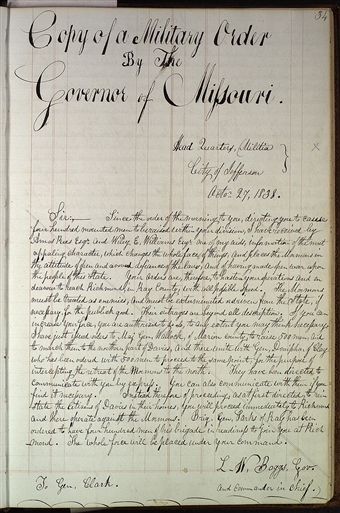 34
Copy of a Military Order
By The
Governor of Missouri.
Head Quarters, Militia
City of Jefferson
Octo. 27, 1838.
Sir:— Since the order of the morning to you, directing you to cause
four hundred mounted men to be raised within your division, I have received by
Amos Rees Esqr. and Wiley E. Williams Esqr. one of my aids, information of the most
appaling character, which changes the whole face of things, and places the Mormons in
the attitude of open and avowed defiance of the laws, and of having made open war upon
the people of this State. Your orders are, therefore, to hasten your operations and en-
deavor to reach Richmond, in Ray County, with all possible speed. The Mormons
must be treated as enemies, and must be exterminated or driven from the State, if
necessary, for the public good. Their outrages are beyond all description. If you can
increase your force, you are authorized to do so, to any extent you may think necessary.
I have just issued orders to Maj. Gen. Wallock, of Marion County, to raise 500 men and
to march them to the northern part of Daviess, and there unite with Gen. Doniphan, of Clay,
who has been ordered with 500 men to proceed to the same point, for the purpose of
intercepting the retreat of the Mormons to the north. They have been directed to
communicate with you by express. You can also communicate with them if you
find it necessary. Instead therefore of proceeding, as at first directed, to rein-
state the citizens of Daviess in their homes, you will proceed immediately to Richmond
and there operate against the Mormons. Brig. Gen. Parks of Ray, has been
ordered to have four hundred men of his brigade in readiness to join you at Rich
mond. The whole force will be placed under your command.
L. W. Boggs, Gov.
To Gen. Clark. and Commander in Chief.